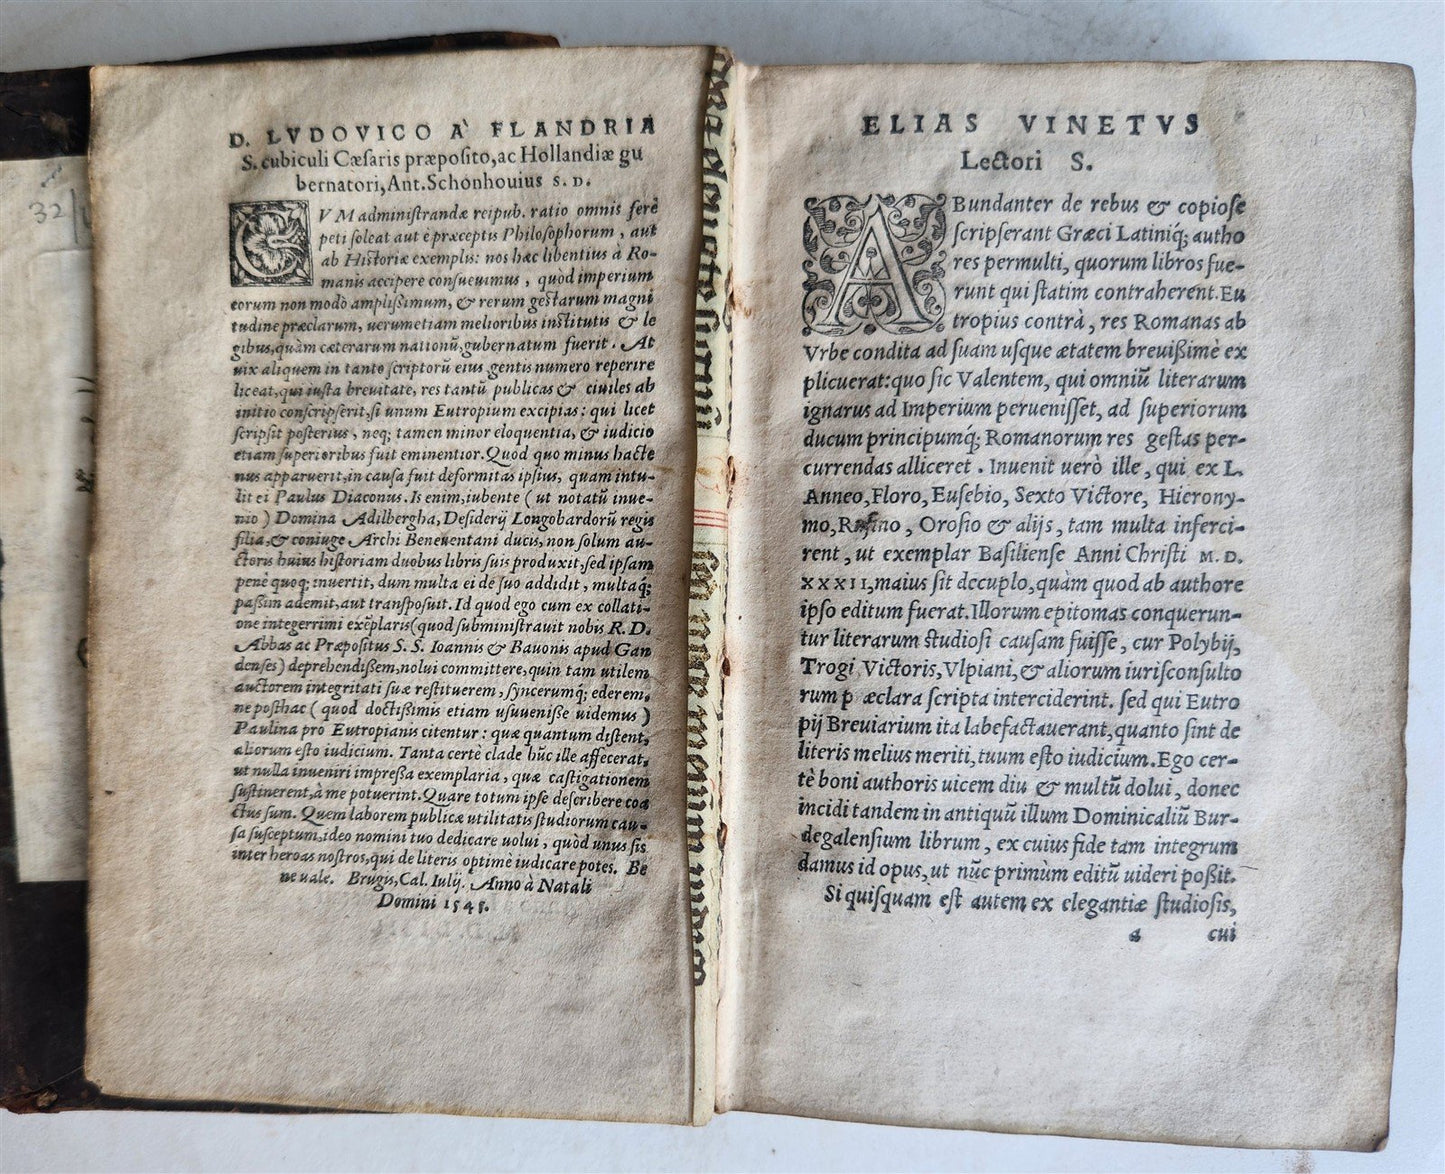 32/
D. LVDOVICO A' FLANDRIA
S. cubiculi Cæsaris præposito, ac Hollandiæ gu
bernatori, Ant. Schonhouius S. D.
CVM administrandæ reipub. ratio omnis ferè
peti soleat aut è præceptis Philosophorum, aut
ab Historiæ exemplis: nos hæc libentius à Ro-
manis accipere consueuimus, quòd imperium
eorum non modò amplißimum, & rerum gestarum magni
tudine præclarum, uerumetiam melioribus institutis & le
gibus, quàm cæterarum nationū, gubernatum fuerit. At
uix aliquem in tanto scriptorū eius gentis numero reperire
liceat, qui iusta breuitate, res tantū publicas & ciuiles ab
initio conscripserit, si unum Eutropium excipias: qui licet
scripsit posterius, neq; tamen minor eloquentia, & iudicio
etiam superioribus fuit eminentior. Quòd quo minus hacte
nus apparuerit, in causa fuit deformitas ipsius, quam intu-
lit ei Paulus Diaconus. Is enim, iubente (ut notatū inue-
nio) Domina Adilbergha, Desiderij Longobardorū regis
filia, & coniuge Archi Beneuentani ducis, non solum au-
ctoris huius historiam duobus libris suis produxit, sed ipsam
penè quoq; inuertit, dum multa ei de suo addidit, multaq́;
paßim ademit, aut transposuit. Id quod ego cum ex collati-
one integerrimi exēplaris (quod subministrauit nobis R. D.
Abbas ac Præpositus S. S. Ioannis & Bauonis apud Gan
denses) deprehendißem, nolui committere, quin tam utilem
auctorem integritati suæ restituerem, syncerumq́; ederem,
ne posthac (quod doctißimis etiam usuuenisse uidemus)
Paulina pro Eutropianis citentur: quæ quantum distent,
aliorum esto iudicium. Tanta certè clade hūc ille affecerat,
ut nulla inueniri impreßa exemplaria, quæ castigationem
sustinerent, à me potuerint. Quare totum ipse describere coa
ctus sum. Quem laborem publicæ utilitatis studiorum cau-
sa susceptum, ideo nomini tuo dedicare uolui, quòd unus sis
inter heroas nostros, qui de literis optimè iudicare potes. Be
ne uale. Brugis, Cal. Iulij. Anno à Natali
Domini 1545.
ELIAS VINETVS
Lectori S.
ABundanter de rebus & copiose
scripserant Græci Latiniq; autho
res permulti, quorum libros fue-
runt qui statim contraherent. Eu
tropius contrà, res Romanas ab
Vrbe condita ad suam usque ætatem breuißimè ex
plicuerat: quo sic Valentem, qui omniū literarum
ignarus ad Imperium peruenisset, ad superiorum
ducum principumq́; Romanorum res gestas per-
currendas alliceret. Inuenit uerò ille, qui ex L.
Anneo, Floro, Eusebio, Sexto Victore, Hierony-
mo, Rufino, Orosio & alijs, tam multa inferci-
rent, ut exemplar Basiliense Anni Christi M. D.
XXXII, maius sit decuplo, quàm quod ab authore
ipso editum fuerat. Illorum epitomas conquerun-
tur literarum studiosi causam fuisse, cur Polybij,
Trogi, Victoris, Vlpiani, & aliorum iurisconsulto
rum p æclara scripta interciderint. sed qui Eutro
pij Breuiarium ita labefactauerant, quanto sint de
literis melius meriti, tuum esto iudicium. Ego cer-
tè boni authoris uicem diu & multū dolui, donec
incidi tandem in antiquū illum Dominicaliū Bur-
degalensium librum, ex cuius fide tam integrum
damus id opus, ut nūc primùm editū uideri poßit.
Si quisquam est autem ex elegantiæ studiosis,
a cui